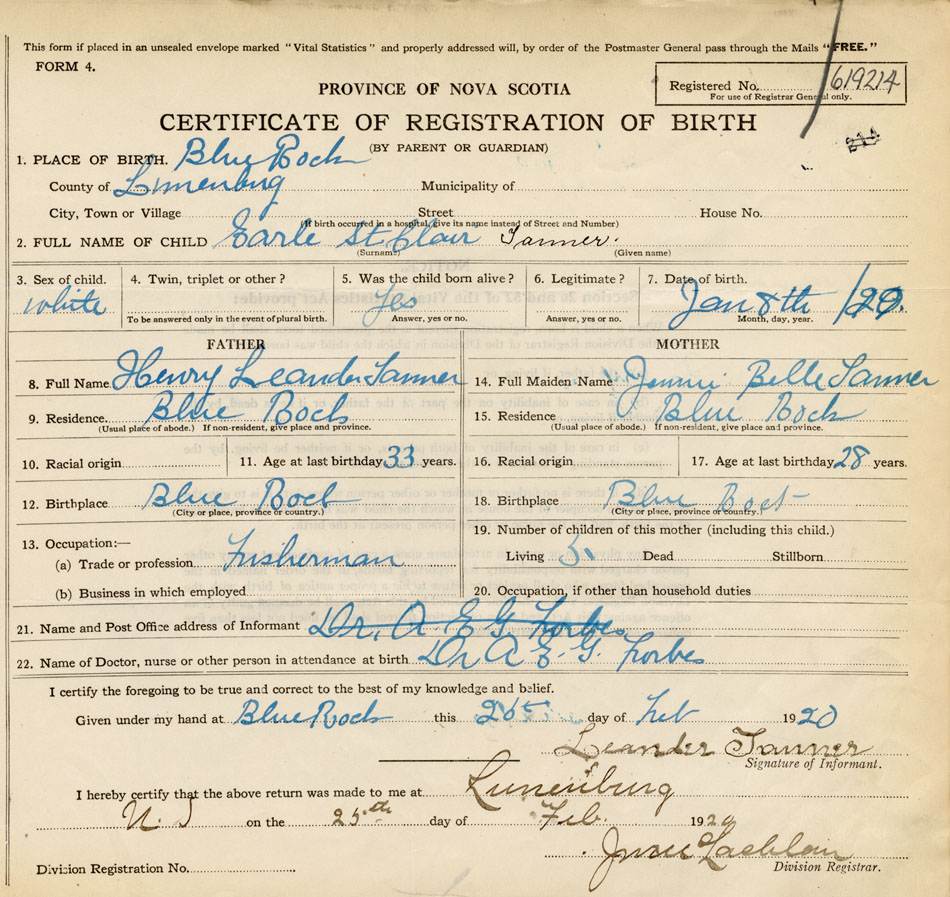 This form if placed in an unsealed envelope marked "Vital Statistics" and properly addressed will, by order of the Postmaster General pass through the Mails "FREE."
FORM 4.
Registered No. 619214
For use of Registrar General only.
PROVINCE OF NOVA SCOTIA
CERTIFICATE OF REGISTRATION OF BIRTH
(BY PARENT OR GUARDIAN)
1. PLACE OF BIRTH. Blue Rock
County of Lunenburg Municipality of
City, Town or Village Street House No.
(If birth occurred in a hospital, give its name instead of Street and Number)
2. FULL NAME OF CHILD Earle St Clair Tanner.
(Surname) (Given name)
3. Sex of child. 4. Twin, triplet or other? 5. Was the child born alive? 6. Legitimate? 7. Date of birth.
white Yes Jan 8th /29.
To be answered only in the event of plural birth. Answer, yes or no. Answer, yes or no. Month, day, year.
FATHER MOTHER
8. Full Name Henry Leander Tanner 14. Full Maiden Name Jennie Belle Tanner
9. Residence. Blue Rock 15. Residence Blue Rock
(Usual place of abode.) If non-resident, give place and province. (Usual place of abode.) If non-resident, give place and province.
10. Racial origin 11. Age at last birthday 33 years. 16. Racial origin 17. Age at last birthday 28 years.
12. Birthplace Blue Rock 18. Birthplace Blue Rock
(City or place, province or country.) (City or place, province or country.)
13. Occupation:— 19. Number of children of this mother (including this child.)
(a) Trade or profession Fusherman Living 5. Dead Stillborn
(b) Business in which employed 20. Occupation, if other than household duties
21. Name and Post Office address of Informant Dr. A E G Forbes
22. Name of Doctor, nurse or other person in attendance at birth Dr A E. G. Forbes
I certify the foregoing to be true and correct to the best of my knowledge and belief.
Given under my hand at Blue Rock this day of Feb 1920
Leander Tanner
Signature of Informant.
I hereby certify that the above return was made to me at Lunenburg
N. S on the 25th day of Feb. 1929
Division Registration No. Division Registrar.